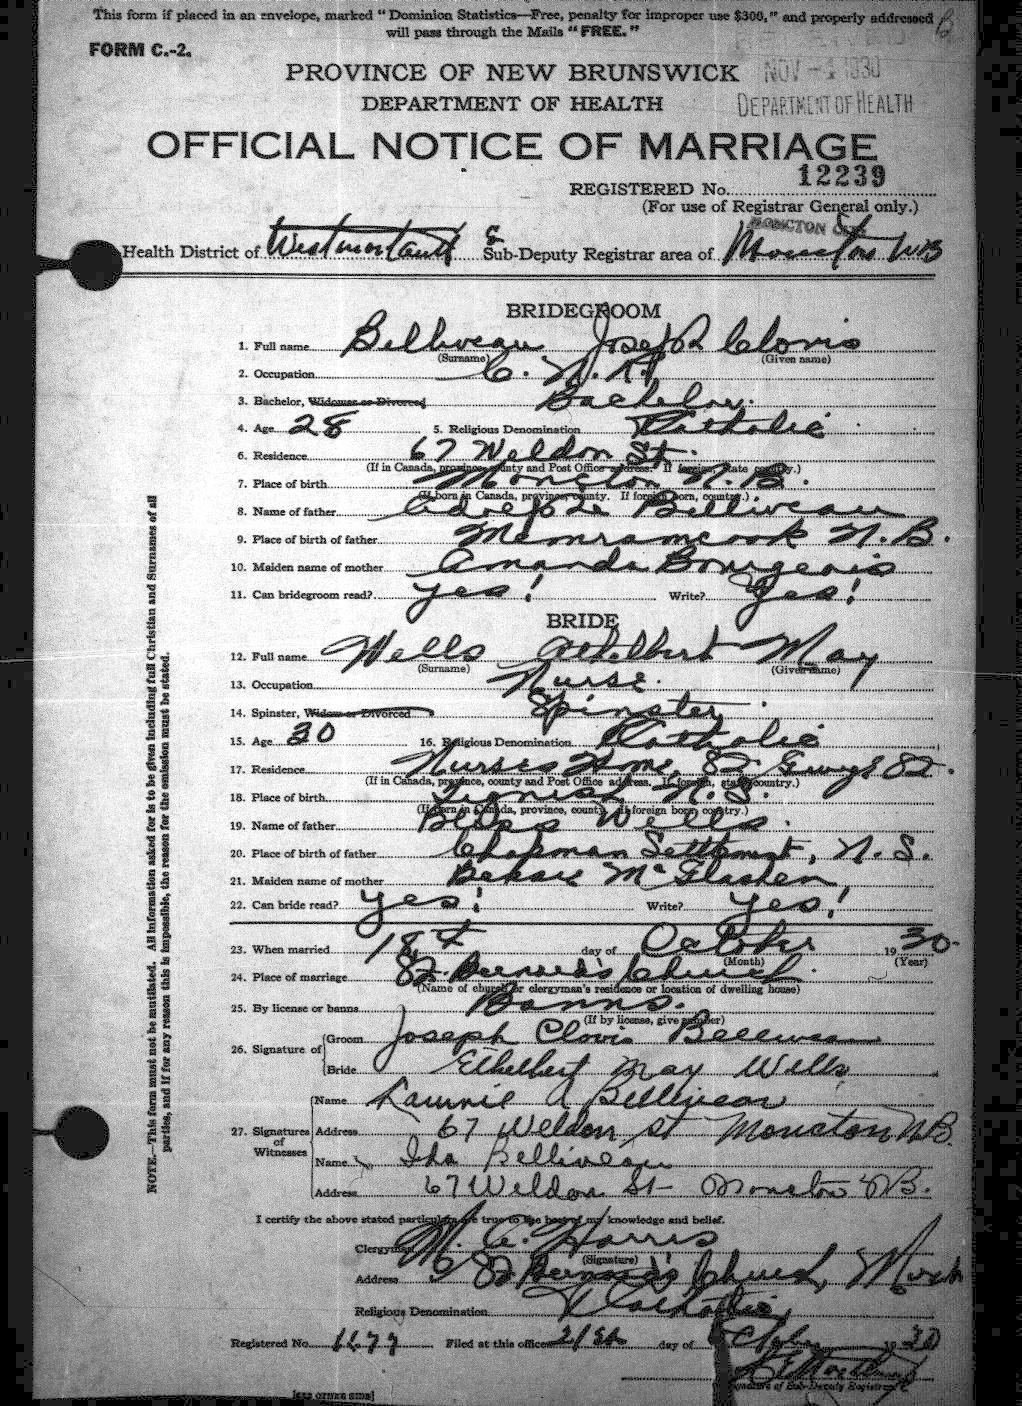 This form if placed in an envelope, marked "Dominion Statistics—Free, penalty for improper use $300," and properly addressed
will pass through the Mails "FREE."
FORM C.-2.
PROVINCE OF NEW BRUNSWICK
NOV -4 1930
DEPARTMENT OF HEALTH
DEPARTMENT OF HEALTH
OFFICIAL NOTICE OF MARRIAGE
REGISTERED No. 12239
(For use of Registrar General only.)
MONCTON
Health District of Westmorland & Sub-Deputy Registrar area of Moncton NB
BRIDEGROOM
1. Full name Belliveau Joseph Clovis
(Surname) (Given name)
2. Occupation C. N. R.
3. Bachelor, Widower or Divorced Bachelor.
4. Age 28 5. Religious Denomination Catholic
6. Residence 67 Weldon St.
(If in Canada, province, county and Post Office address. If foreign, state country.)
7. Place of birth Moncton N. B.
(If born in Canada, province, county. If foreign born, country.)
8. Name of father Belliveau
9. Place of birth of father Memramcook N. B.
10. Maiden name of mother Amanda Bourgeois
11. Can bridegroom read? Yes! Write? Yes!
BRIDE
12. Full name Wells Ethelbert May
(Surname) (Given name)
13. Occupation Nurse.
14. Spinster, Widow or Divorced Spinster
15. Age 30 16. Religious Denomination Catholic
17. Residence Nurses Home, St.
(If in Canada, province, county and Post Office address. If foreign, state country.)
18. Place of birth N. S.
(If born in Canada, province, county. If foreign born country.)
19. Name of father Bliss Wells
20. Place of birth of father Chapman Settlement, N. S.
21. Maiden name of mother Bessie
22. Can bride read? Yes! Write? Yes!
23. When married 18th day of October 1930
(Month) (Year)
24. Place of marriage St. Bernard's Church
(Name of church or clergyman's residence or location of dwelling house)
25. By license or banns Banns.
(If by license, give number)
26. Signature of Groom Joseph Clovis Belliveau
Bride Ethelbert May Wells
27. Signatures of Witnesses
Name Lawrie A Belliveau
Address 67 Weldon St Moncton NB.
Name Ida Belliveau
Address 67 Weldon St- Moncton NB.
I certify the above stated particulars are true to the best of my knowledge and belief.
Clergyman Harris
(Signature)
Address St Bernard's Church,
Religious Denomination Catholic
Registered No. 1677 Filed at this office 21st day of October 1930
Signature of Sub-Deputy Registrar
NOTE.—This form must not be mutilated. All information asked for is to be given including full Christian and Surnames of all
parties, and if for any reason this is impossible, the reason for the omission must be stated.